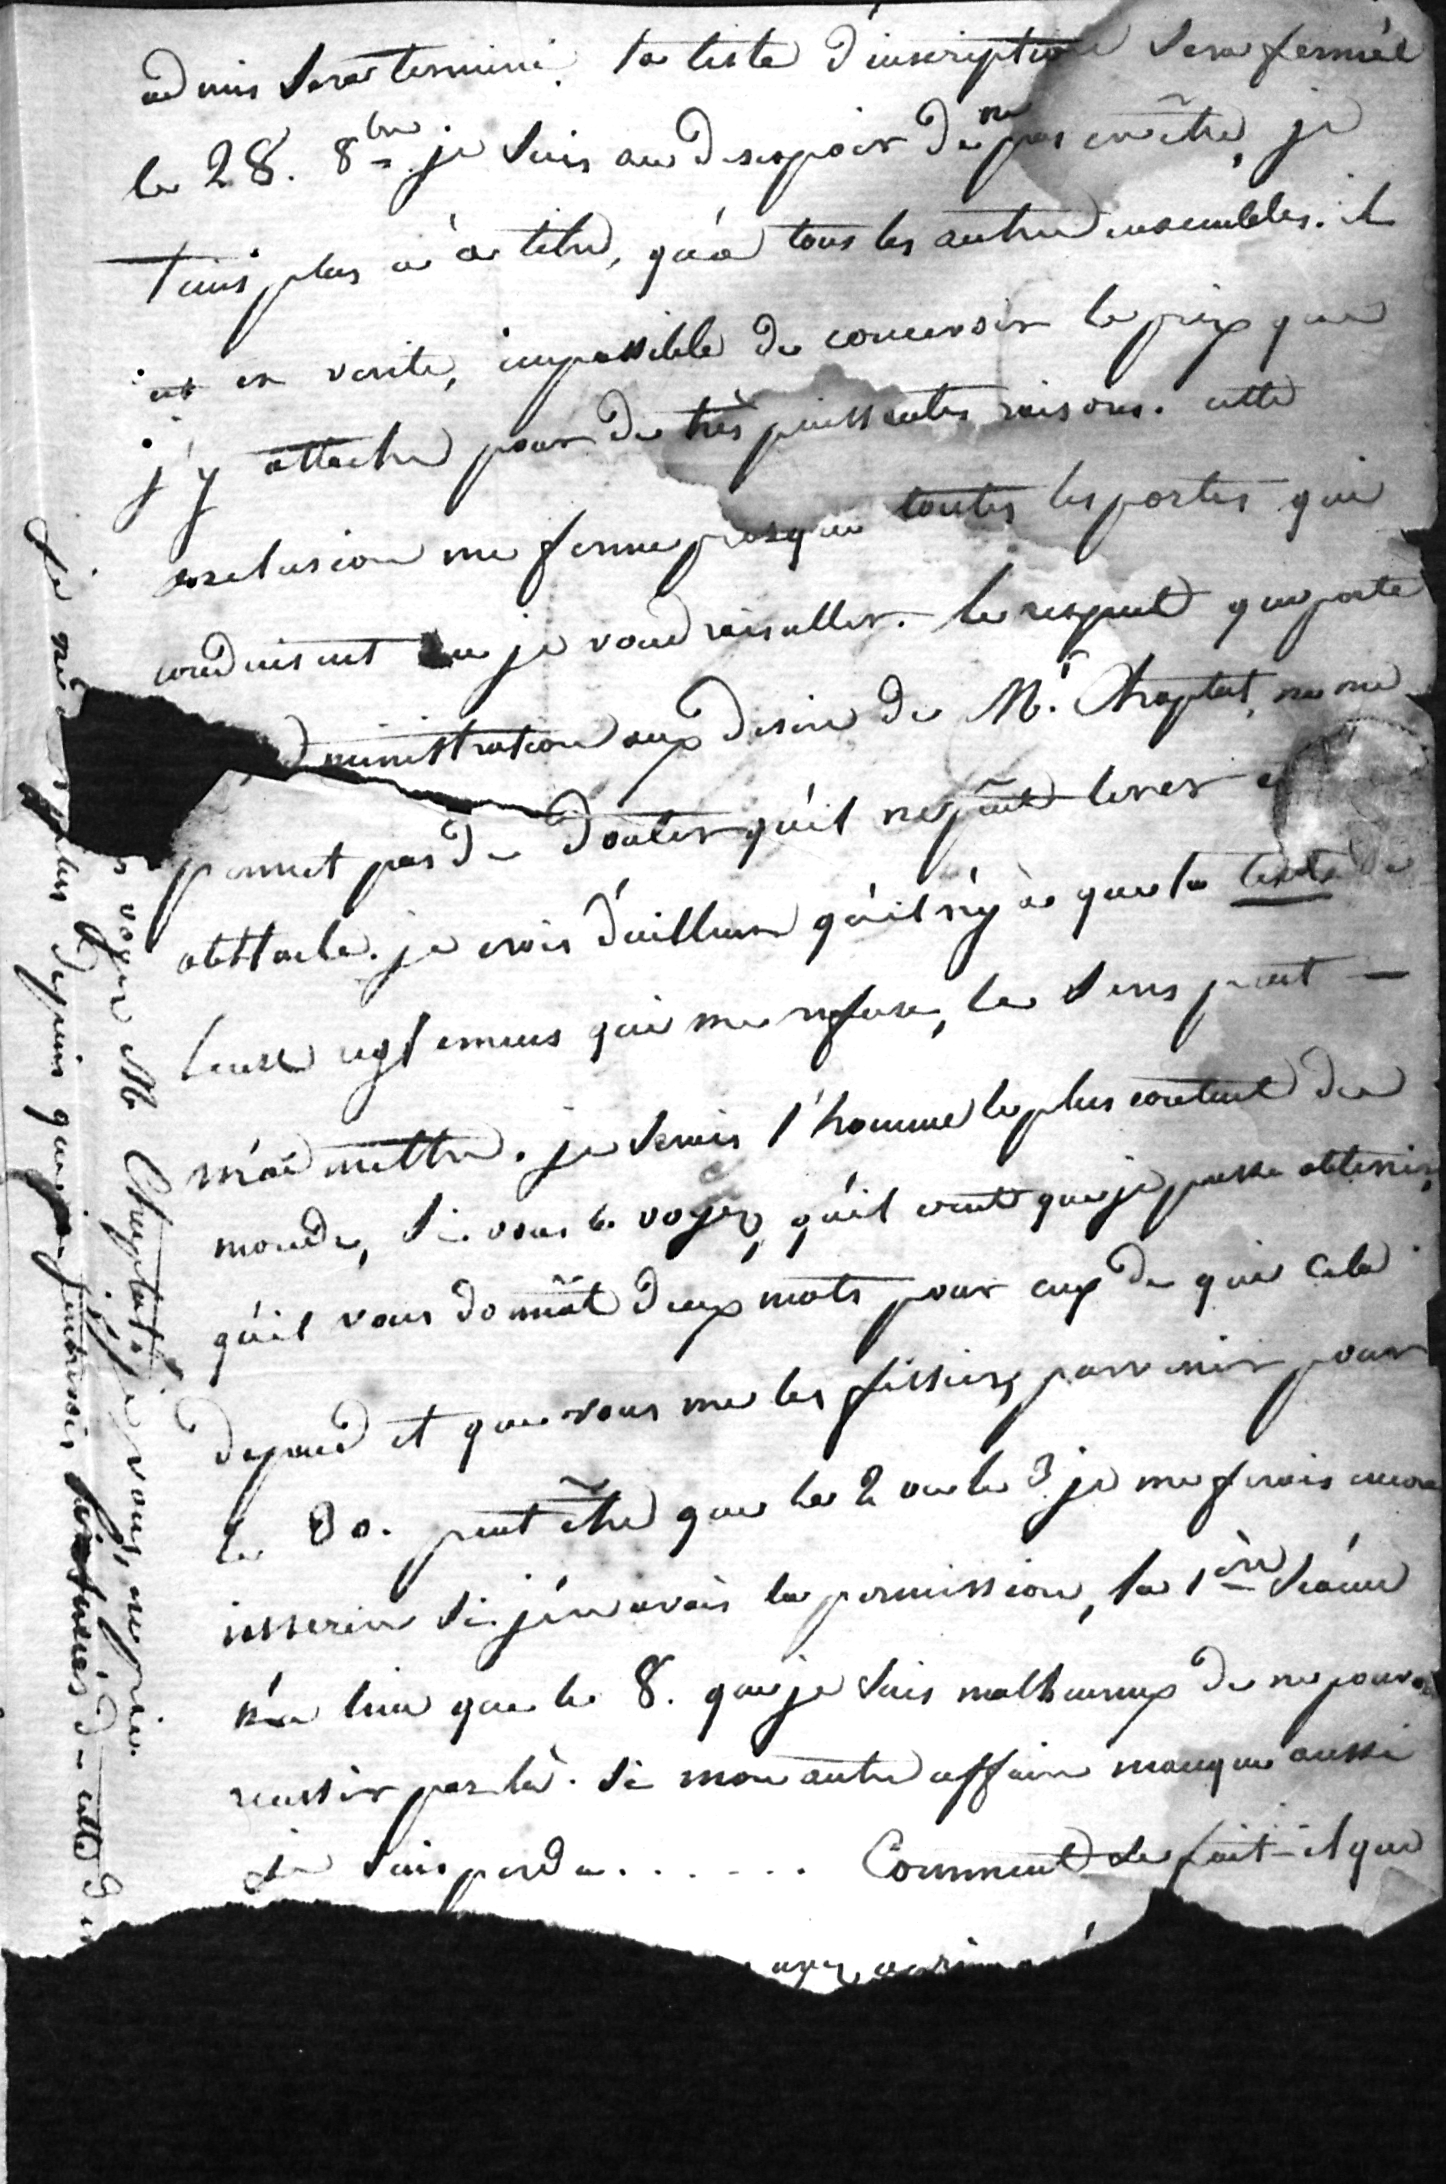 admis sera terminé. la liste d'inscription sera fermée
le 28. 8bre je suis au desespoir de ne pas en être, je
tiens plus à ce titre, qu'à tous les autres ensembles. il
est en verité, impossible de concevoir le prix que
j'y attache pour de très puissantes raisons. cette
exclusion me ferme presque toutes les portes qui
conduisent ou je voudrais aller. le respect que porte
dministration aux desirs de Mr. Chaptal, ne me
permet pas de douter qu'il ne put lever
obstacle. je crois d'ailleurs qu'il n'y a que la texte de
leurs reglemens qui me refuse, le sens peut
m'admettre. je serais l'homme le plus content du
monde, si vous le voyez, qu'il crut que je pusse obtenir,
qu'il vous donnât deux mots pour ceux de qui cela
depend et que vous me les fissiez parvenir pour
le 30. peut être que le 2 ou le 3 je me ferais encore
inserire si j'en avais la permission, la 1ère séance
n'a lieu que le 8. que je suis malheureux de ne pouvoir
reussir par là. si mon autre affaire manque aussi
je suis perdu. . . . . . Comment se fait-il que
avez
voyez Mr Chaptal. je vous, en prie.
je ne plus depuis que